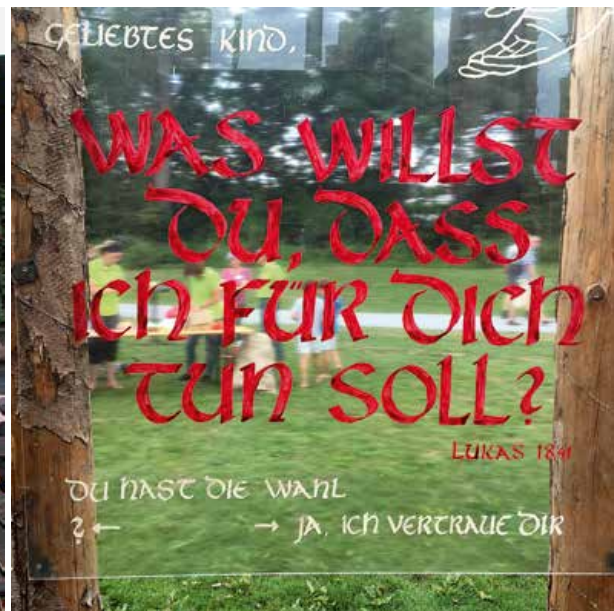 GELIEBTES KIND,
WAS WILLST
DU, DASS
ICH FÜR DICH
TUN SOLL?
LUKAS 18 41
DU HAST DIE WAHL
? ← → JA, ICH VERTRAUE DIR